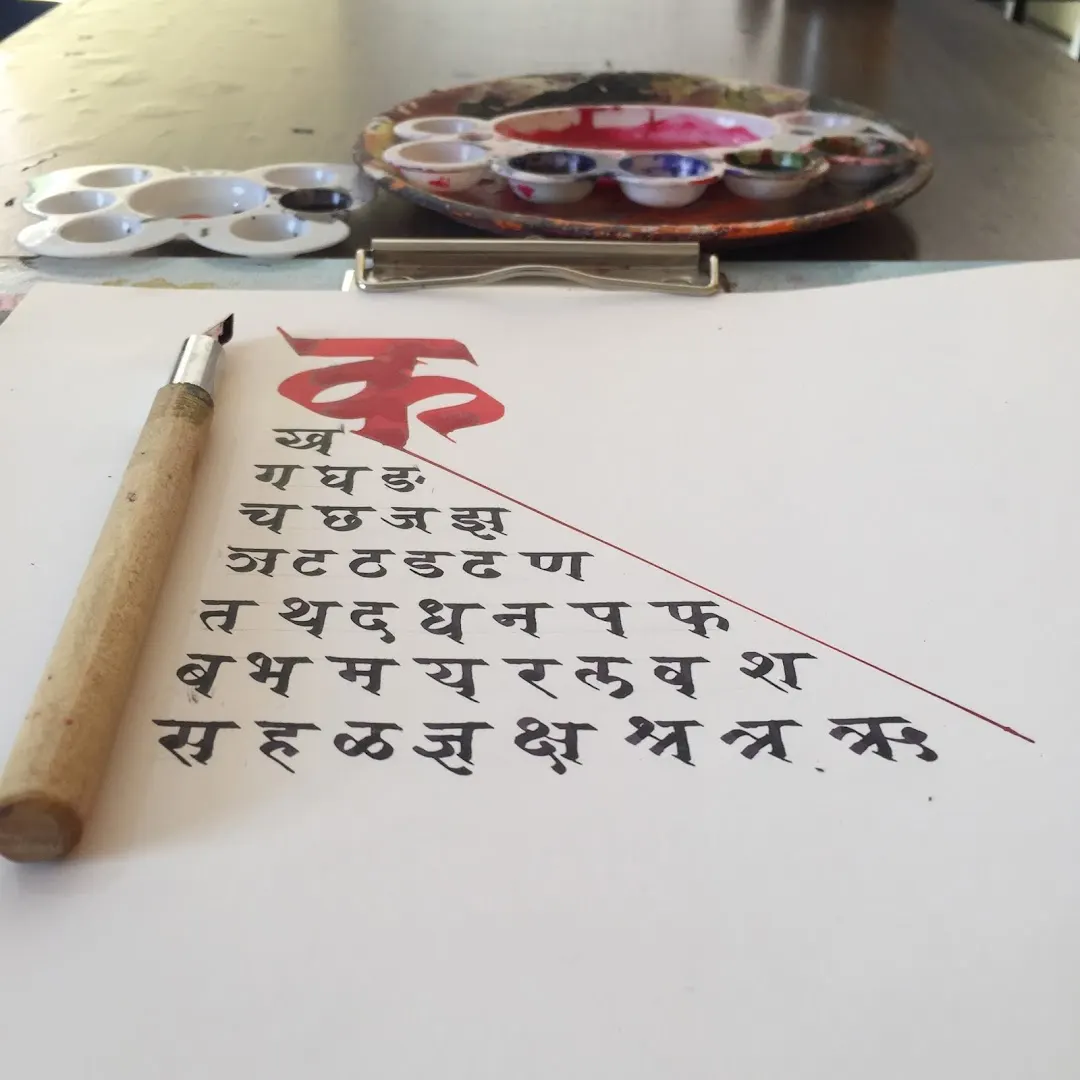 क
ख
ग घ ङ
च छ ज झ
ञ ट ठ ड ढ ण
त थ द ध न प फ
ब भ म य र ल व श
स ह ळ ज्ञ क्ष श्र त्र ऋ